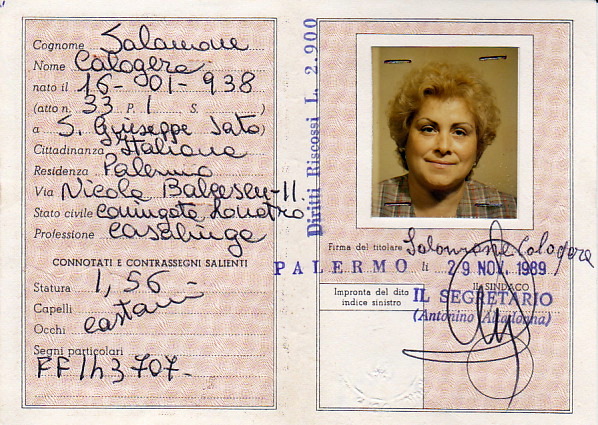 Cognome Salamone
Nome Calogera
nato il 16-01-938
(atto n. 33 P. I S. )
a S. Giuseppe Jato
Cittadinanza Italiana
Residenza Palermo
Via Nicolo
Stato civile coniugata Lo
Professione casalinga
CONNOTATI E CONTRASSEGNI SALIENTI
Statura 1,56
Capelli
Occhi castani
Segni particolari
Diritti Riscossi L. 2.900
Firma del titolare Salamone Calogera
PALERMO li 29 NOV. 1989
Impronta del dito
indice sinistro
IL SINDACO
IL SEGRETARIO